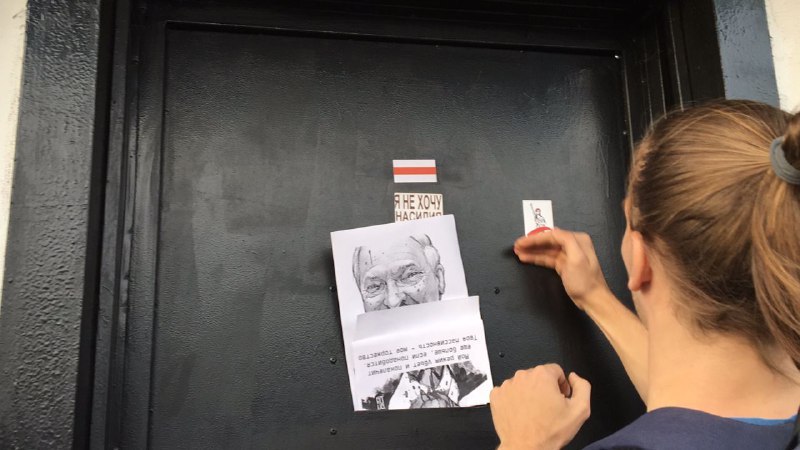 Я НЕ ХОЧУ
НАСИЛИЯ
Мой режим убьет и покалечит
еще больше, если понадобится.
Твоя пассивность - мое торжество